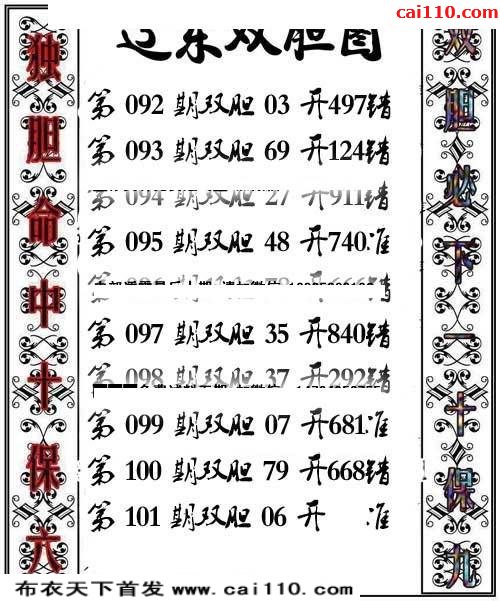 cai110.com
辽东双胆图
独胆命中十保六
双胆必下一十保九
第 092 期双胆 03 开497错
第 093 期双胆 69 开124错
第 094 期双胆 27 开911错
第 095 期双胆 48 开740准
第 097 期双胆 35 开840错
第 098 期双胆 37 开292错
第 099 期双胆 07 开681准
第 100 期双胆 79 开668错
第 101 期双胆 06 开 准
布衣天下首发 www.cai110.com